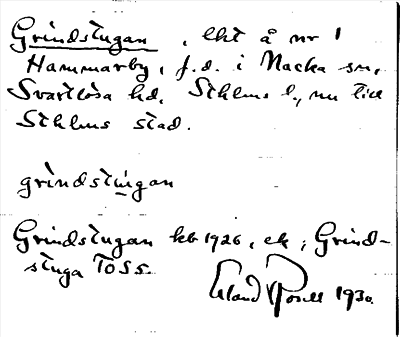 Grindstugan, lht å nr 1
Hammarby, f.d. i Nacka sn,
Svartlösa hd, Sthlms l., nu till
Sthlms stad.
grindstugan
Grindstugan kb 1926, ek; Grind-
stuga TOSS.
Erland Rosell 1930.